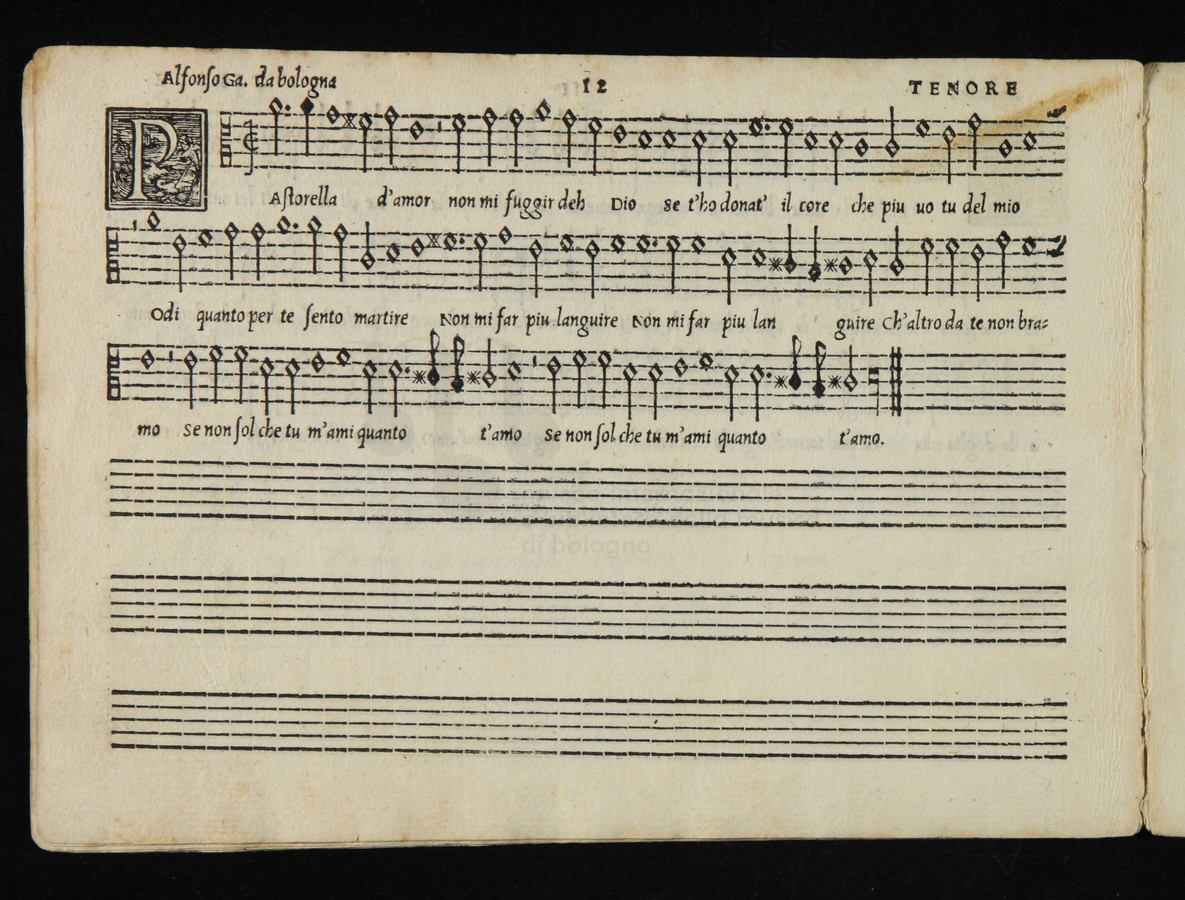 Alfonso Ga. da bologna 12 TENORE
PAstorella d'amor non mi fuggir deh Dio se t'ho donat' il core che piu uo tu del mio
Odi quanto per te sento martire Non mi far piu languire Non mi far piu lan guire Ch'altro da te non bra=
mo Se non sol che tu m'ami quanto t'amo Se non sol che tu m'ami quanto t'amo.
di bologna